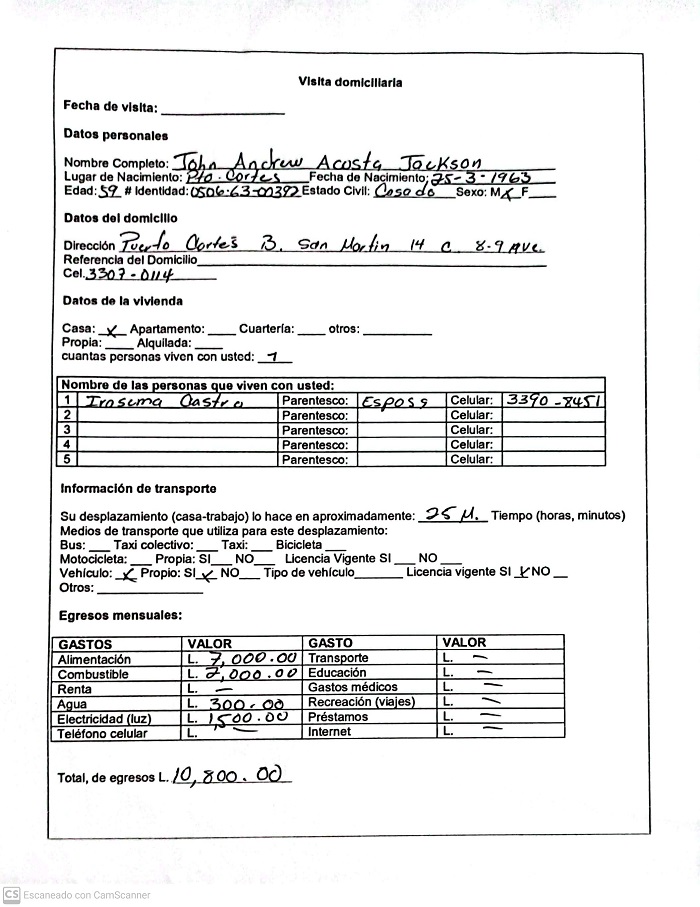 Visita domiciliaria
Fecha de visita: ____________
Datos personales
Nombre Completo: John Andrew Acosta Jackson
Lugar de Nacimiento: Pto. Cortes Fecha de Nacimiento: 25-3-1963
Edad: 59 # Identidad: 0506-63-00392 Estado Civil: Casado Sexo: M X F___
Datos del domicilio
Dirección Puerto Cortés B. San Martin 14 C 8-9 Ave.
Referencia del Domicilio____________
Cel. 3307-0114
Datos de la vivienda
Casa: X Apartamento: ____ Cuartería: ____ otros: __________
Propia: ____ Alquilada: ____
cuantas personas viven con usted: 1
Nombre de las personas que viven con usted:
1 Castro Parentesco: Esposa Celular: 3390-8451
2 Parentesco: Celular:
3 Parentesco: Celular:
4 Parentesco: Celular:
5 Parentesco: Celular:
Información de transporte
Su desplazamiento (casa-trabajo) lo hace en aproximadamente: 25 M. Tiempo (horas, minutos)
Medios de transporte que utiliza para este desplazamiento:
Bus: ___ Taxi colectivo: ___ Taxi: ___ Bicicleta ___
Motocicleta: ___ Propia: SI___ NO___ Licencia Vigente SI ___ NO ___
Vehículo: X Propio: SI X NO___ Tipo de vehículo_______ Licencia vigente SI X NO __
Otros: _______________
Egresos mensuales:
GASTOS VALOR GASTO VALOR
Alimentación L. 7,000.00 Transporte L. —
Combustible L. 2,000.00 Educación L. —
Renta L. — Gastos médicos L. —
Agua L. 300.00 Recreación (viajes) L. —
Electricidad (luz) L. 1500.00 Préstamos L. —
Teléfono celular L. — Internet L. —
Total, de egresos L. 10,800.00
CS Escaneado con CamScanner